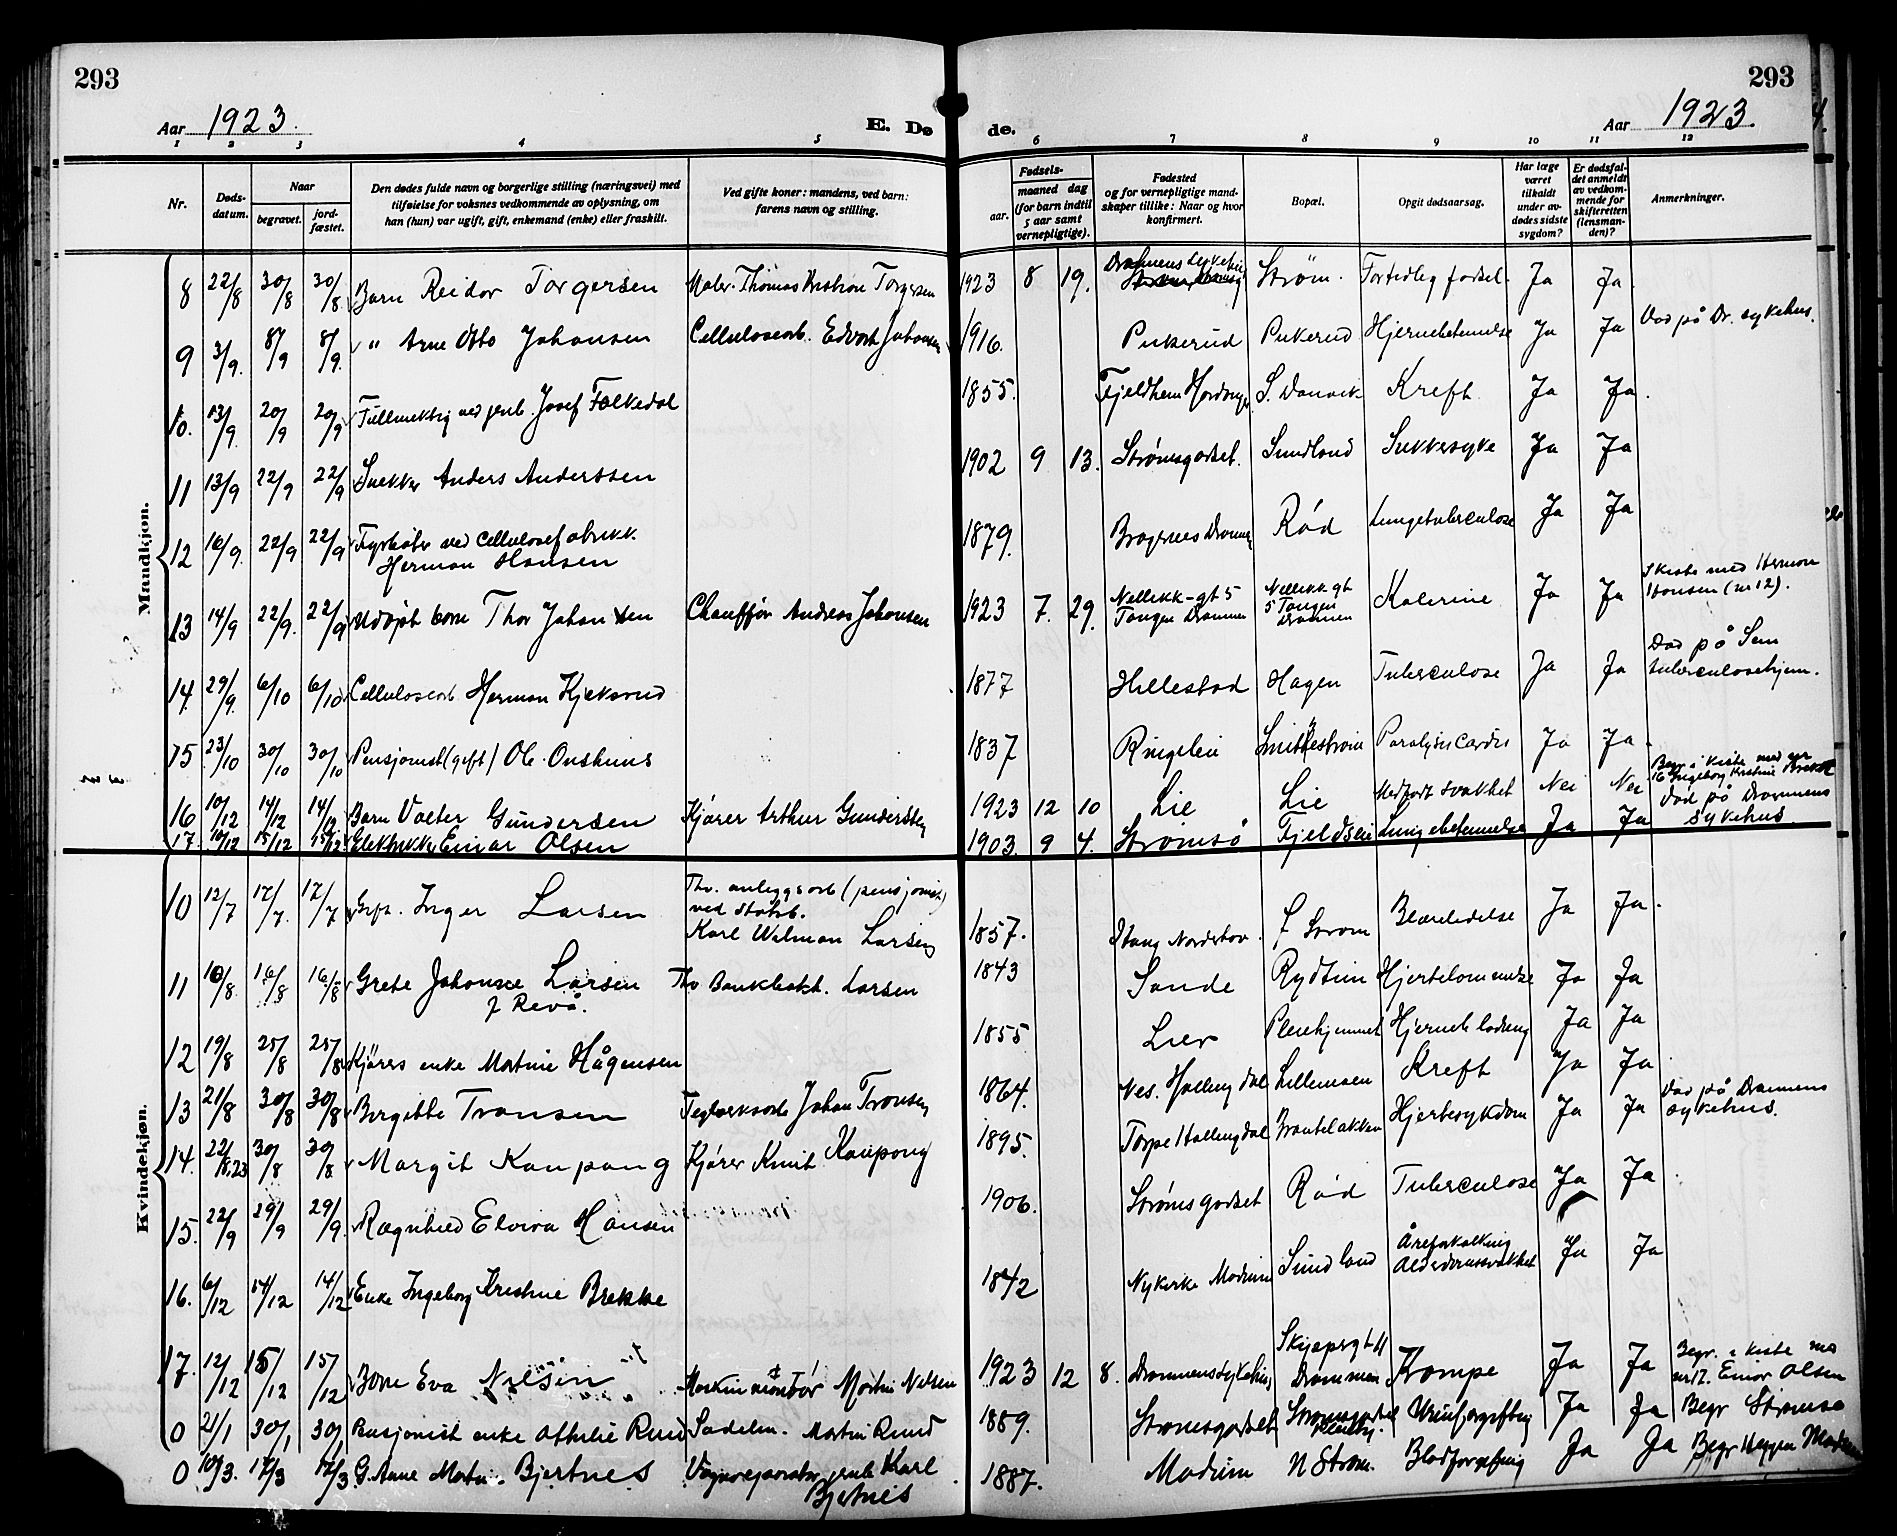 293
293
Aar 1923.
E. Dø de.
Aar 1923.
1 2 3 4 5 6 7 8 9 10 11 12
Nr.
Døds-datum.
Naar
begravet.
jord-fæstet.
Den dødes fulde navn og borgerlige stilling (næringsvei) med
tilføielse for voksnes vedkommende av oplysning, om
han (hun) var ugift, gift, enkemand (enke) eller fraskilt.
Ved gifte koner: mandens, ved barn:
farens navn og stilling.
Fødsels-
aar.
maaned dag
(for barn indtil
5 aar samt
vernepligtige).
Fødested
og for vernepligtige mand-
skaper tillike: Naar og hvor
konfirmert.
Bopæl.
Opgit dødsaarsag.
Har læge
været
tilkaldt
under av-
dødes sidste
sygdom?
Er dødsfal-
det anmeldt
av vedkom-
mende for
skifteretten
(lensman-
den)?
Anmerkninger.
Mandkjøn.
8 22/8 30/8 30/8 Barn Reidar Torgersen Maler Thomas Kristian Torgersen 1923 8 19. Drammens sykehus Strøm. Fortidlig fødsel. Ja Ja
9 3/9. 8/9 8/9. " Arne Otto Johansen Cellulosearb. Edvart Johansen 1916. Pukerud Pukerud Hjernebetennelse Ja Ja Død på Dr. sykehus.
10. 13/9 20/9 20/9 Fullmektig ved jernb. Josef Folkedal 1855. S. Danvik Kreft Ja Ja.
11 13/9 22/9 22/9 Snekker Anders Anderssen 1902 9 13. Strømsgodset. Sundland Sukkersyke Ja Ja
12 16/9. 22/9 22/9 Fyrbøter ved cellulosefabrikk.
Herman Hansen 1879. Bragernes Drammen Rød Lungetuberculose Ja Ja
13 14/9 22/9. 22/9 Udøpt barn Thor Johansen Chauffør Andreas Johansen 1923 7. 29. Nellikk-gt 5
Tangen Drammen Nellikk gt
5 Tangen
Drammen Kolerine Ja Ja I kiste med Herman
Hansen (nr 12).
14. 29/9. 6/10 6/10 Cellulosearb Herman Kjeksrud 1877 Hillestad Hagen Tuberculose Ja Ja Død på Sem
tuberculosehjem.
15 23/10 30/10 30/10 Pensjonist (gift) Ole Onshuus 1837 Ringelien Smittestrøm Paralysis Cordis Ja Ja
16 10/12 14/12 14/12 Barn Valter Gundersen Kjører Arthur Gundersen 1923 12 10 Lie Lie Medfødt svakhet Nei Nei Begr i kiste med nr
16 Ingeborg Kristine Brekke
17. 10/12 15/12 15/12 Elektriker Einar Olsen 1903. 9 4. Strømsø Fjeldslie Lungebetennelse Ja Ja Død på Drammens
sykehus.
Kvindekjøn.
10 12/7 17/7. 17/7 Gift. Inger Larsen Fhv. anleggsarb (pensjonist)
ved statsb.
Karl Valman Larsen 1857. Stang Nordstrøm Blæreledelse Ja Ja.
11 10/8. 16/8 16/8 Grete Johanne Larsen
f Revå. Fhv Larsen 1843 Sande Rydtun Ja Ja
12 19/8 25/8 25/8 Kjørers enke Martine Hågensen 1855 Lier Pleiehjemmet Ja Ja
13 21/8 30/8 30/8 Bergitte Transen Teglverksarb Johan Transen 1864. Nes. Hallingdal Lillemoen Kreft Ja Ja
14. 22/8.23 30/8 30/8. Margit Kaupang Kjører Knut Kaupang 1895. Torpe Hallingdal Brantebakken Hjertesykdom Ja Ja Død på Drammens
sykehus.
15. 22/9 29/9 29/9. Ragnhild Elvira Hansen 1906. Strømsgodset Rød Tuberculose Ja Ja
16. 6/12 14/12 14/12 Enke Ingeborg Kristine Brekke 1842 Nykirke Modum Sundland Åreforkalkning
Alderdomssvakhet Ja Ja
17. 12/12 15/12 15/12 Barn Eva Nilsen Maskinmontør Martin Nilsen 1923 12 8. Drammens sykehus Skippergt 11
Drammen Krampe Ja Ja Begr. i kiste med
nr 17. Einar Olsen
0 21/1 30/1 30/1 Pensjonist enke Athilie Ruud Sadelm. Martin Ruud 1889. Strømsgodset Strømsgodset
pleiehj. Urinforgiftning Ja Ja Begr Strømsø
0 10/3. 17/3 17/3 G. Anne Marta Bjertnes Vognreparatør jernb Karl
Bjertnes 1887. Modum N Strøm. Blodforgiftning Ja Ja Begr Heggen Modum